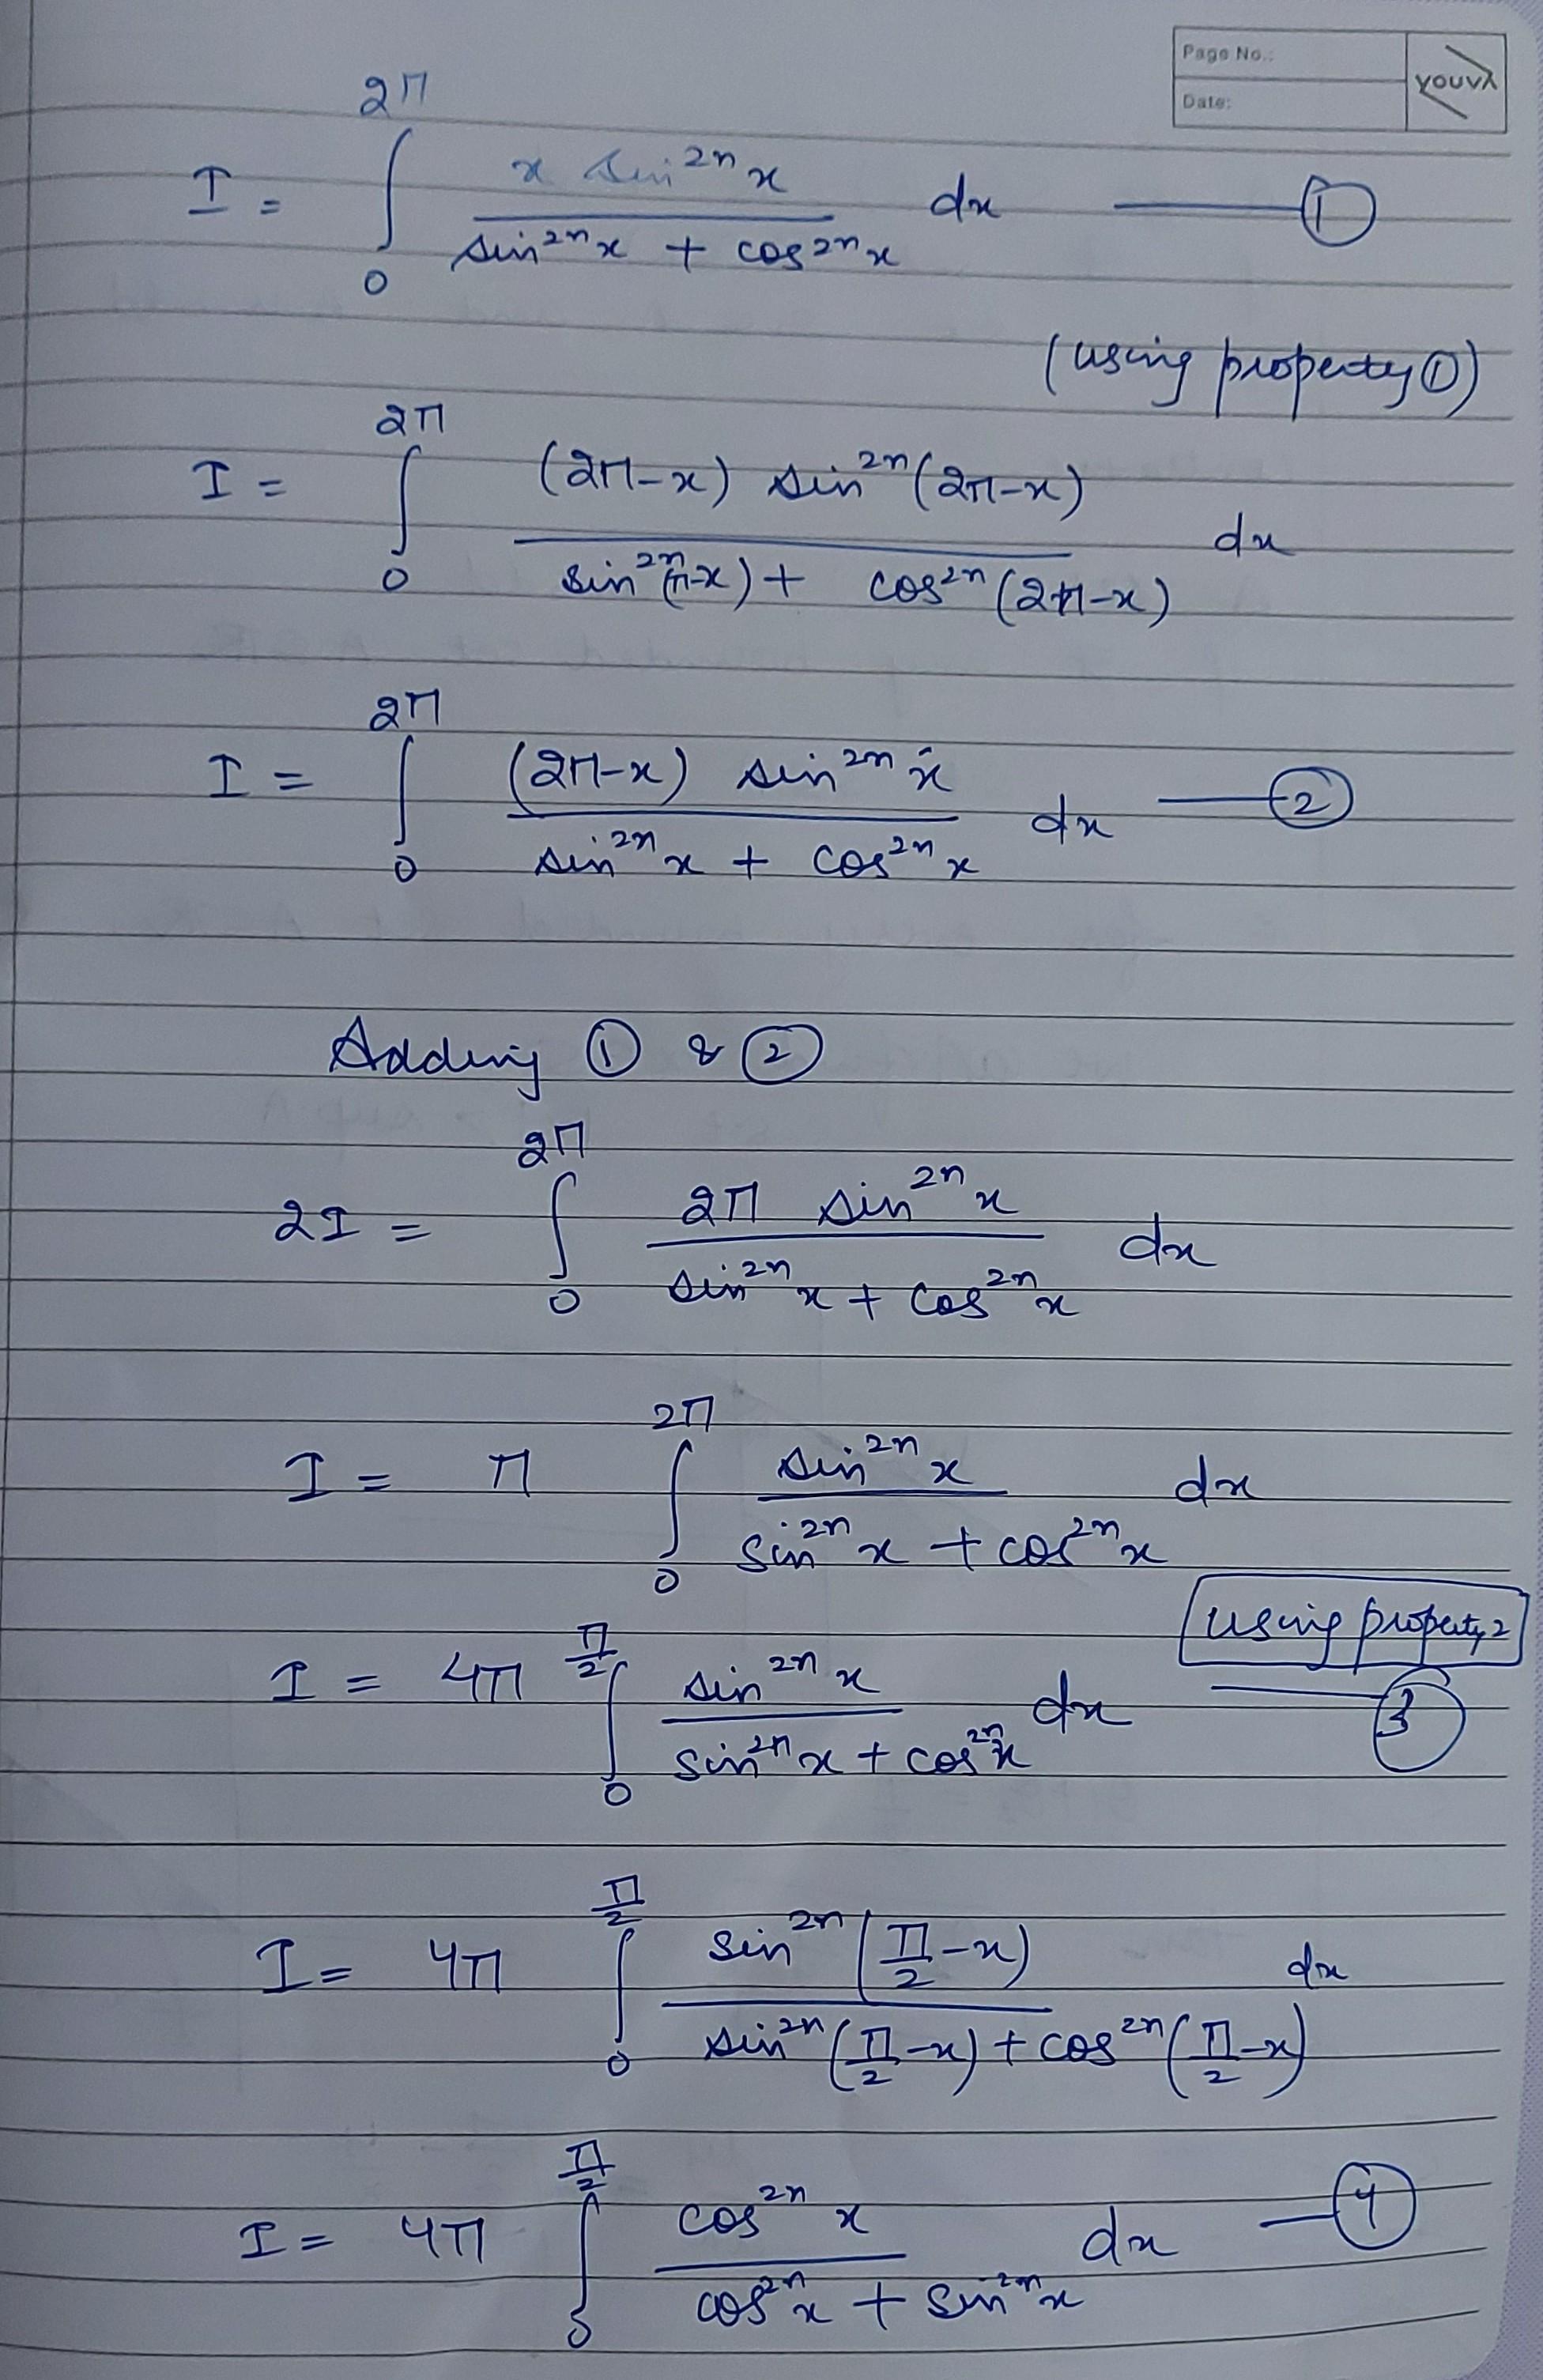 Page No.:
Date:
YOUVA
I = ∫₀^{2π} x sin^{2n} x / (sin^{2n} x + cos^{2n} x) dx —— ①
(using property ①)
I = ∫₀^{2π} (2π-x) sin^{2n} (2π-x) / (sin^{2n} (π-x) + cos^{2n} (2π-x)) dx
I = ∫₀^{2π} (2π-x) sin^{2n} x / (sin^{2n} x + cos^{2n} x) dx —— ②
Adding ① & ②
2I = ∫₀^{2π} 2π sin^{2n} x / (sin^{2n} x + cos^{2n} x) dx
I = π ∫₀^{2π} sin^{2n} x / (sin^{2n} x + cos^{2n} x) dx
using property 2
I = 4π ∫₀^{π/2} sin^{2n} x / (sin^{2n} x + cos^{2n} x) dx —— ③
I = 4π ∫₀^{π/2} sin^{2n} (π/2 - x) / (sin^{2n} (π/2 - x) + cos^{2n} (π/2 - x)) dx
I = 4π ∫₀^{π/2} cos^{2n} x / (cos^{2n} x + sin^{2n} x) dx —— ④